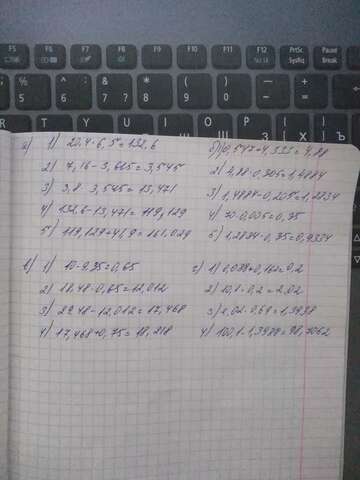 F5 F6 F7 F8 F9 F10 F11 F12 PrtSc SysRq Pause Break
а) 1) 20,4·6,5=132,6
2) 7,16-3,615=3,545
3) 3,8·3,545=13,471
4) 132,6-13,471=119,129
5) 119,129+41,9=161,029
б) 1) 0,547+4,333=4,88
2) 4,88·0,305=1,4884
3) 1,4884-0,205=1,2834
4) 70·0,005=0,35
5) 1,2834-0,35=0,9334
в) 1) 10-9,35=0,65
2) 18,48·0,65=12,012
3) 29,48-12,012=17,468
4) 17,468+0,75=18,218
г) 1) 0,038+0,162=0,2
2) 10,1·0,2=2,02
3) 2,02·0,69=1,3938
4) 100,1-1,3938=98,7062